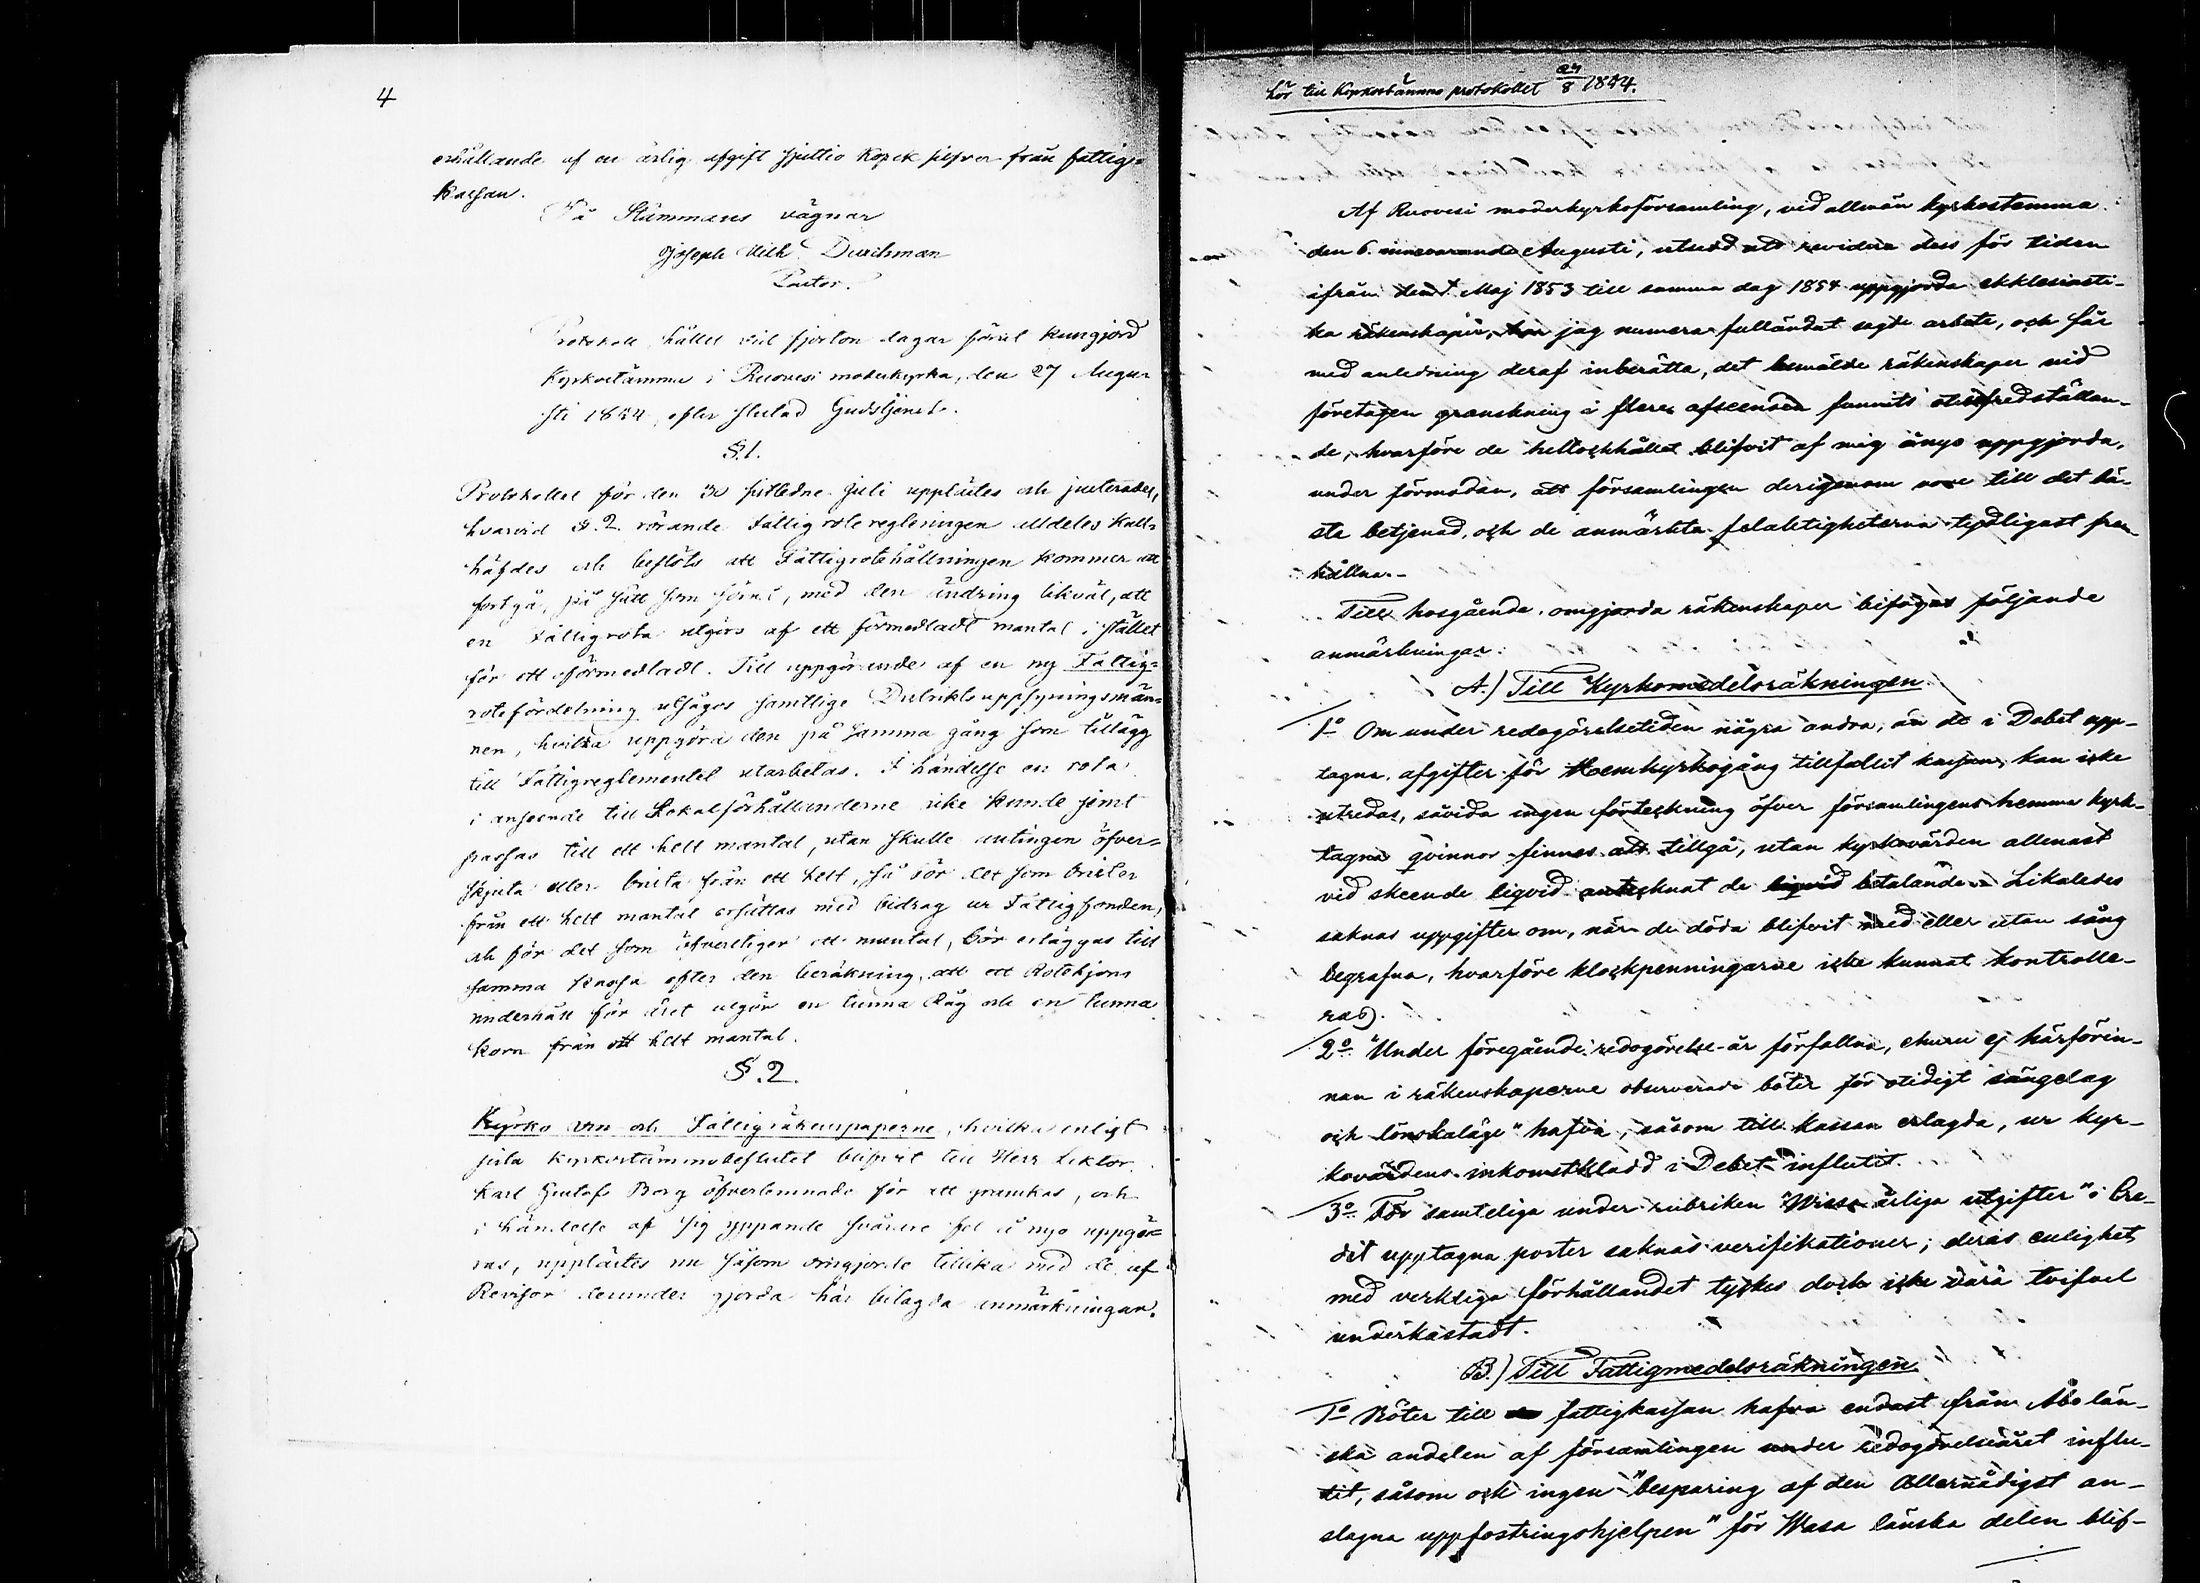 4
erhållande af en årlig afgift sjuttio kopek silfver från fattig-
kassan.
På Stämmans vägnar
Joseph Wilh. Durchman
Pastor.
Protokoll, hållet vid fjorton dagar förut kungjord
Kyrkostämma i Ruovesi moderkyrka, den 27 Augu-
sti 1854, efter slutad Gudstjenst.
§.1.
Protokollet för den 30 sistledne Juli upplästes och justerades,
hvarvid §.2. rörande Fattigroteregleringen alldeles kull-
häfdes och beslöts att Fattigrotehållningen kommer att
fortgå, på sätt som förut, med den ändring likväl, att
en Fattigrota utgörs af ett förmedladt mantal i stället
för ett oförmedladt. Till uppgörande af en ny Fattig-
rotefördelning utsågos samtlige Distriktsuppsyningsmän-
nen, hvilka uppgöra den på samma gång som tillägg
till Fattigreglementet utarbetas. I händelse en rota
i anseende till Lokalförhållanderne icke kunde jemt
passas till ett helt mantal, utan skulle antingen öfver-
skjuta eller brista från ett helt, så bör det som brister
från ett helt mantal ersättas med bidrag ur Fattigfonden,
och för det som öfverstiger ett mantal, bör erläggas till
samma kassa efter den beräkning, att ett Rotehjons
underhåll för året utgör en tunna Råg och en tunna
korn från ett helt mantal.
§.2.
Kyrko och Fattigräkenskaperne, hvilka enligt
sista kyrkostämmobeslutet blifvit till Herr Lektor
Karl Gustaf Borg öfverlemnade för att granskas, och
i händelse af sig yppande svårare fel å nyo uppgö-
ras, upplästes nu såsom omgjorde tillika med de af
Revisor derunder gjorda här bilagda anmärkningar.
hör till Kyrkostämmo protokollet 27/8 1854.
Af Ruovesi moderkyrkoförsamling, vid allmän kyrkostämma
den 6. innevarande Augusti, utsedd att revidera dess för tiden
ifrån den 1 Maj 1853 till samma dag 1854 uppgjorda ekklesiasti-
ka räkenskaper, har jag numera fulländat sagde arbete, och får
med anledning deraf inberätta, det bemälde räkenskaper vid
företagen granskning i flere afseenden funnits otillfredställan-
de, hvarföre de helt och hållet blifvit af mig ånyo uppgjorda,
under förmodan, att församlingen derigenom vore till det bä-
sta betjenad, och de anmärkta felaktigheterna tydligast fram-
hållna.-
Till hosgående omgjorda räkenskaper bifogas följande
anmärkningar:
A.) Till Kyrkomedelsräkningen.
1o Om under redogörelsetiden några andra, än de i Debet upp-
tagna afgifter för Hemkyrkogång tillfallit kassan, kan icke
utredas, såvida ingen förteckning öfver församlingens hemma kyrk-
tagna qvinnor finnes att tillgå, utan kyrkovärden allenast
vid skeende liqvid antecknat de betalande. Likaledes
saknas uppgifter om, när de döda blifvit med eller utan sång
begrafna, hvarföre klockpenningarne icke kunnat kontrolle-
ras.
2o Under föregående redogörelse-år förfallna, ehuru ej härförin-
nan i räkenskaperne observerade böter för otidigt sängelag
och lönskaläge" hafva, såsom till kassan erlagda, ur kyr-
kovärdens inkomstkladd i Debet influtit.
3o För samteliga under rubriken "Wissa årliga utgifter" i Cre-
dit upptagna poster saknas verifikationer; deras enlighet
med verkliga förhållandet tyckes dock icke vara tvifvel
underkastadt.
B.) Till Fattigmedelsräkningen.
1o Böter till fattigkassan hafva endast från Åbo län-
ska andelen af församlingen under redogörelseåret influ-
tit, såsom ock ingen "besparing af den Allernådigst an-
slagna uppfostringshjelpen" för Wasa länska delen blif-